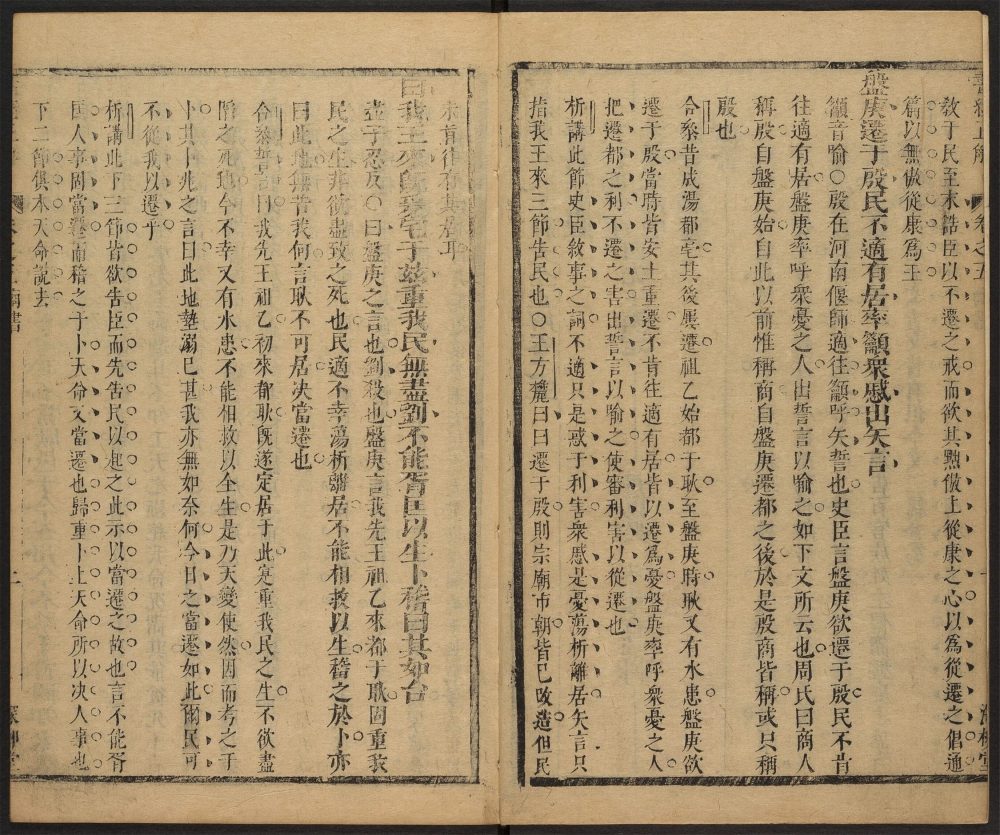 教于民至末誥臣以不遷之戒而欲其黜傲上從康之心以為從遷之倡通
篇以無傲從康為主
盤庚遷于殷民不適有居率籲衆慼出矢言
籲音喻○殷在河南偃師適往籲呼矢誓也史臣言盤庚欲遷于殷民不肯
往適有居盤庚率呼衆憂之人出誓言以喻之如下文所云也周氏曰商人
稱殷自盤庚始自此以前惟稱商自盤庚遷都之後於是殷商皆稱或只稱
殷也
合叅昔成湯都亳其後屢遷祖乙始都于耿至盤庚時耿又有水患盤庚欲
遷于殷當時皆安土重遷不肯往適有居皆以遷為憂盤庚率呼衆憂之人
把遷都之利不遷之害出誓言以喻之使審利害以從遷也
析講此節史臣敘事之詞不適只是惑于利害衆慼是憂蕩析離居矢言只
指我王來三節告民也○王方麓曰曰遷于殷則宗廟市朝皆已改造但民
未肯往有其居耳
曰我王來既爰宅于茲重我民無盡劉不能胥匡以生卜稽曰其如台
盡子忍反○曰盤庚之言也劉殺也盤庚言我先王祖乙來都于耿固重我
民之生非欲盡致之死也民適不幸蕩析離居不能相救以生稽之於卜亦
曰此地無若我何言耿不可居決當遷也
合叅誓言曰我先王祖乙初來都耿既遂定居于此寔重我民之生不欲盡
陷之死地今不幸又有水患不能相救以全生是乃天變使然因而考之于
卜其卜兆之言曰此地墊溺已甚我亦無如奈何今日之當遷如此爾民可
不從我以遷乎
析講此下三節皆欲告臣而先告民以起之此示以當遷之故也言不能胥
匡人事固當遷而稽之于卜天命又當遷也歸重卜上天命所以决人事也
下二節俱本天命說去